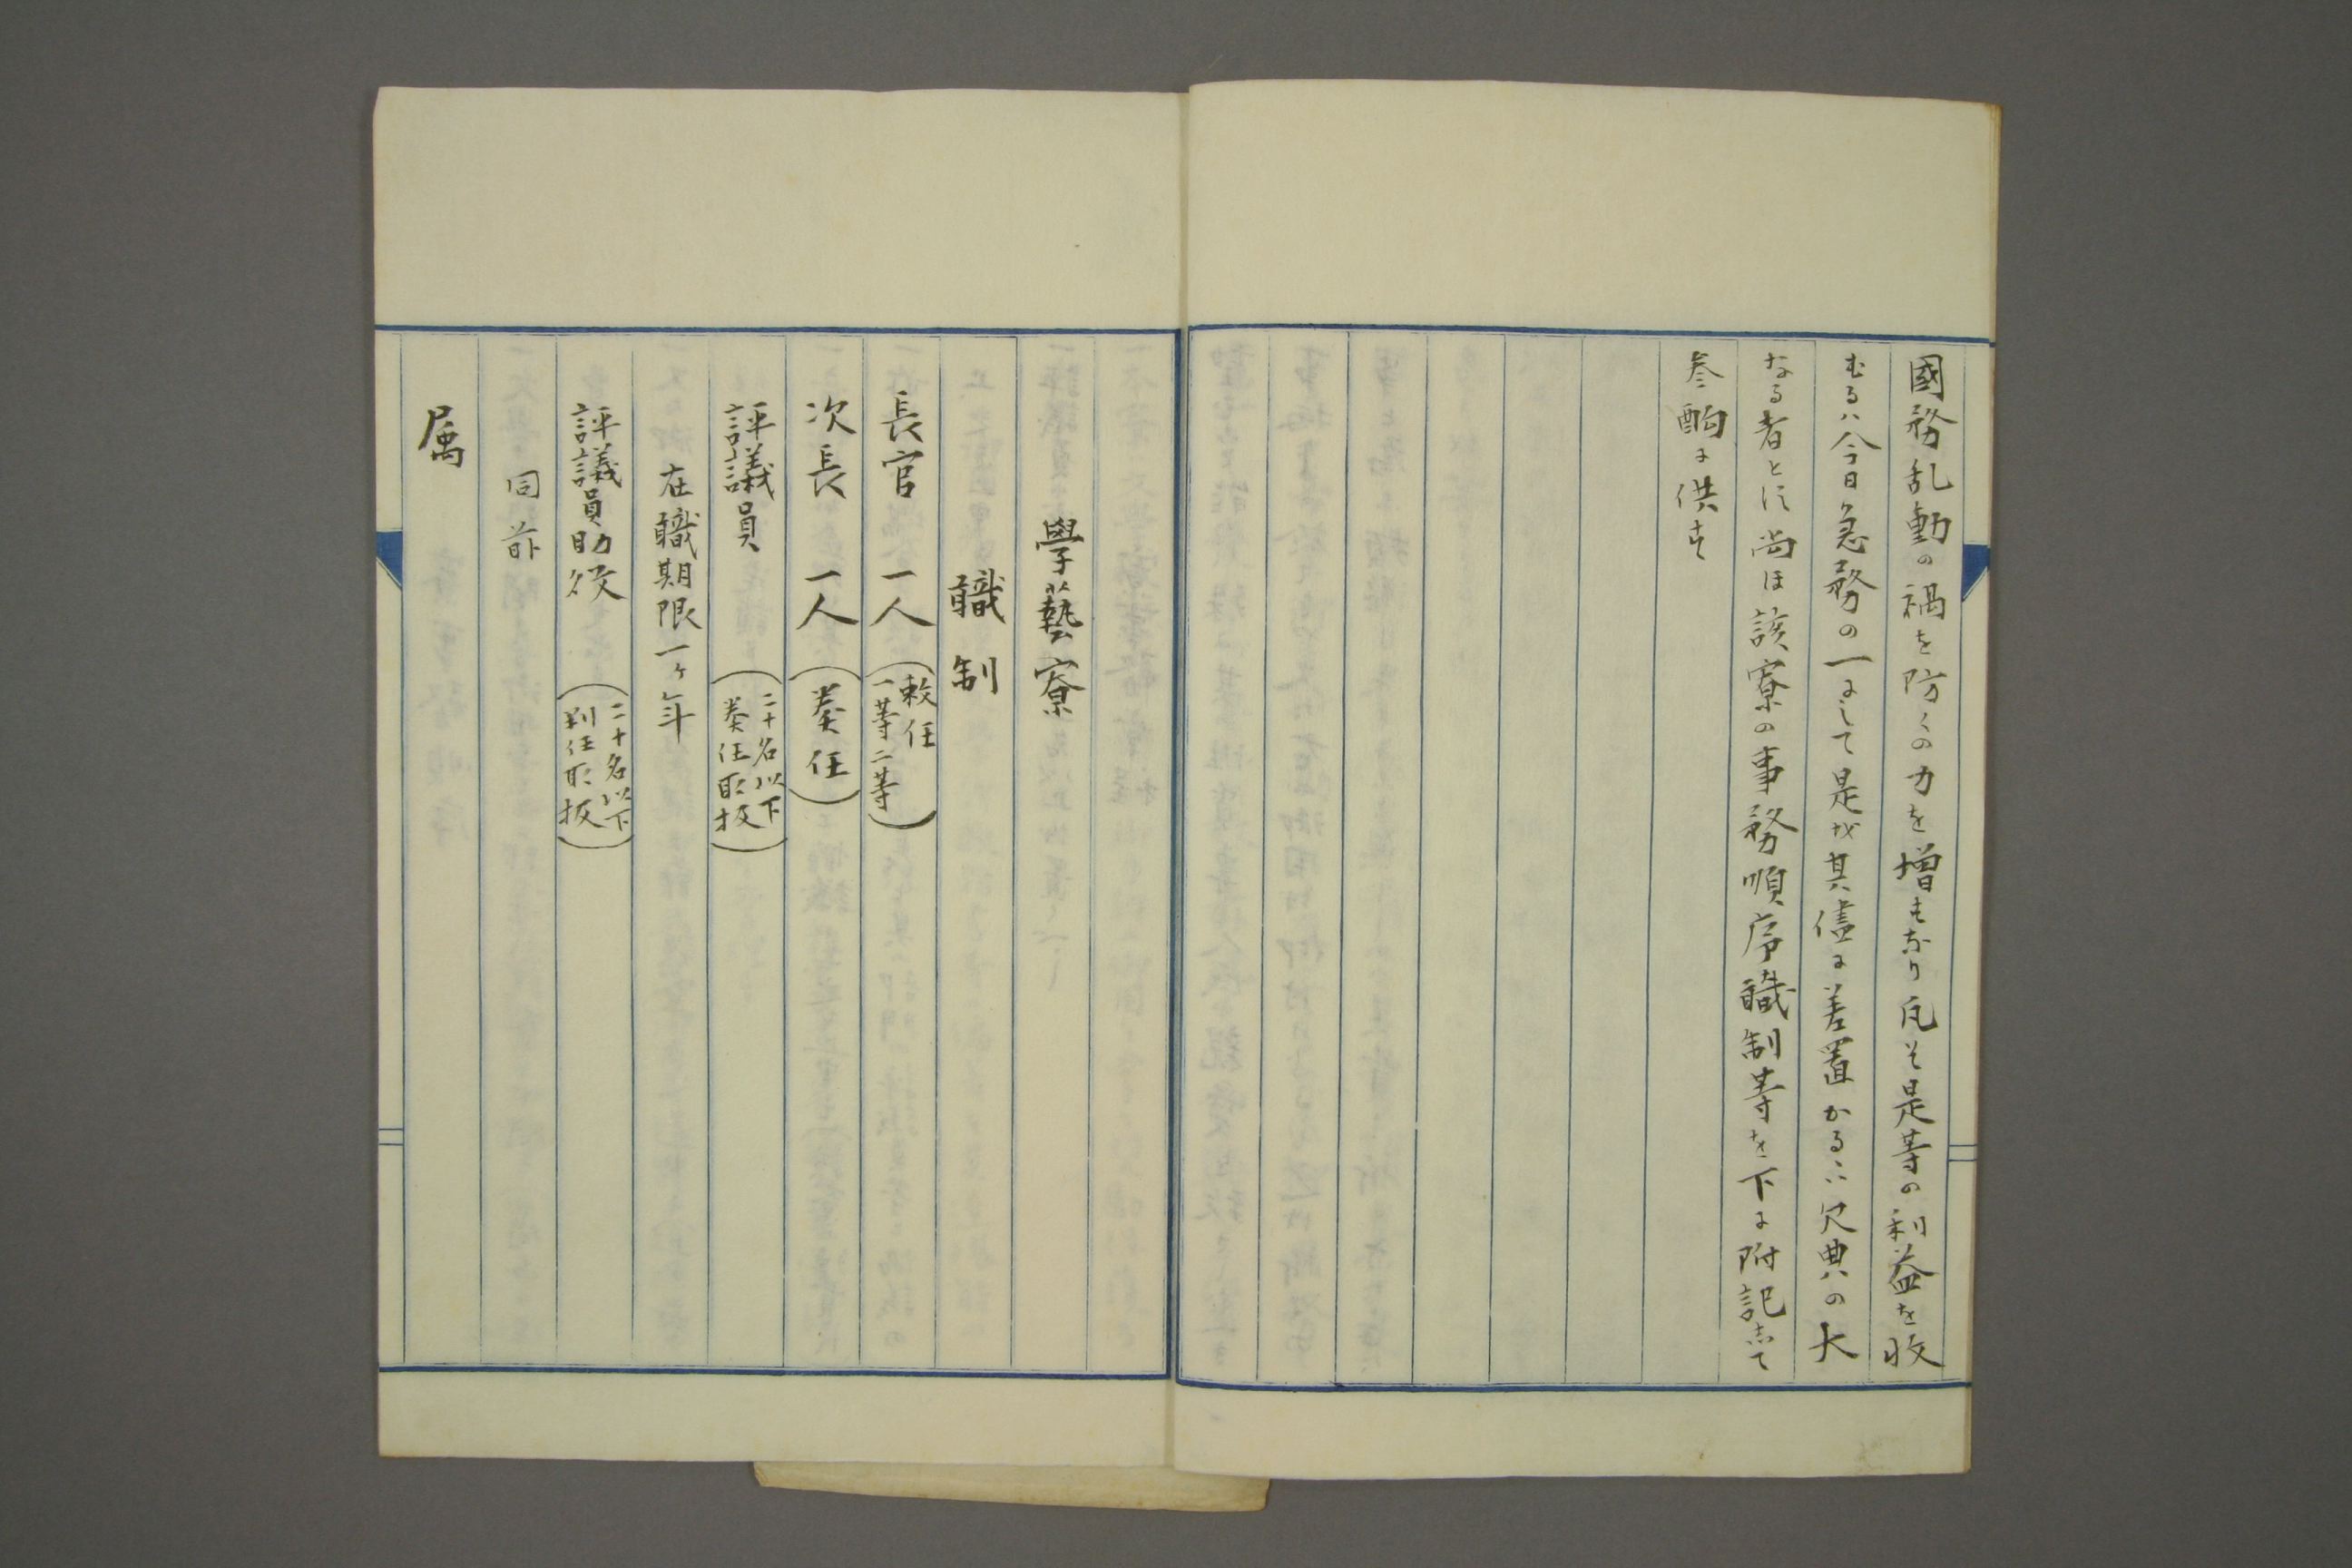 國務乱動の禍を防くの力を増もなり凡そ是等の利益を收
むるハ今日急務の一にして是を其儘に差置かるゝハ欠典の大
なる者とす尚ほ該寮の事務順序職制等を下に附記して
参酌に供す
學藝寮
職制
長官 一人(敕任 一等二等)
次長 一人(奏任)
評議員 (二十名以下 奏任取扱)
在職期限一ケ年
評議員助役 (二十名以下 判任取扱)
同前
属